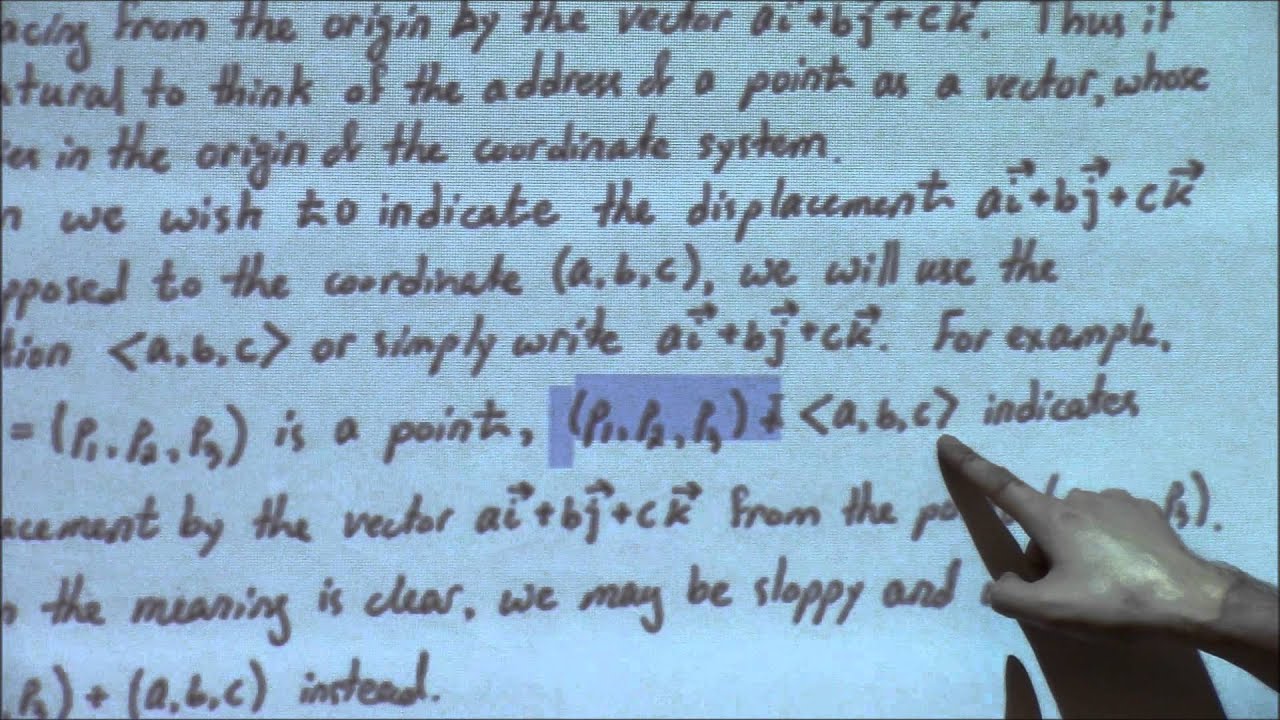 acing from the origin by the vector ai⃗+bj⃗+ck⃗. Thus it
atural to think of the address of a point as a vector, whose
ies in the origin of the coordinate system.
n we wish to indicate the displacement ai⃗+bj⃗+ck⃗
pposed to the coordinate (a,b,c), we will use the
tion <a,b,c> or simply write ai⃗+bj⃗+ck⃗. For example,
= (p₁,p₂,p₃) is a point, (p₁,p₂,p₃) + <a,b,c> indicates
acement by the vector ai⃗+bj⃗+ck⃗ from the po p₃).
n the meaning is clear, we may be sloppy and
p₃) + (a,b,c) instead.